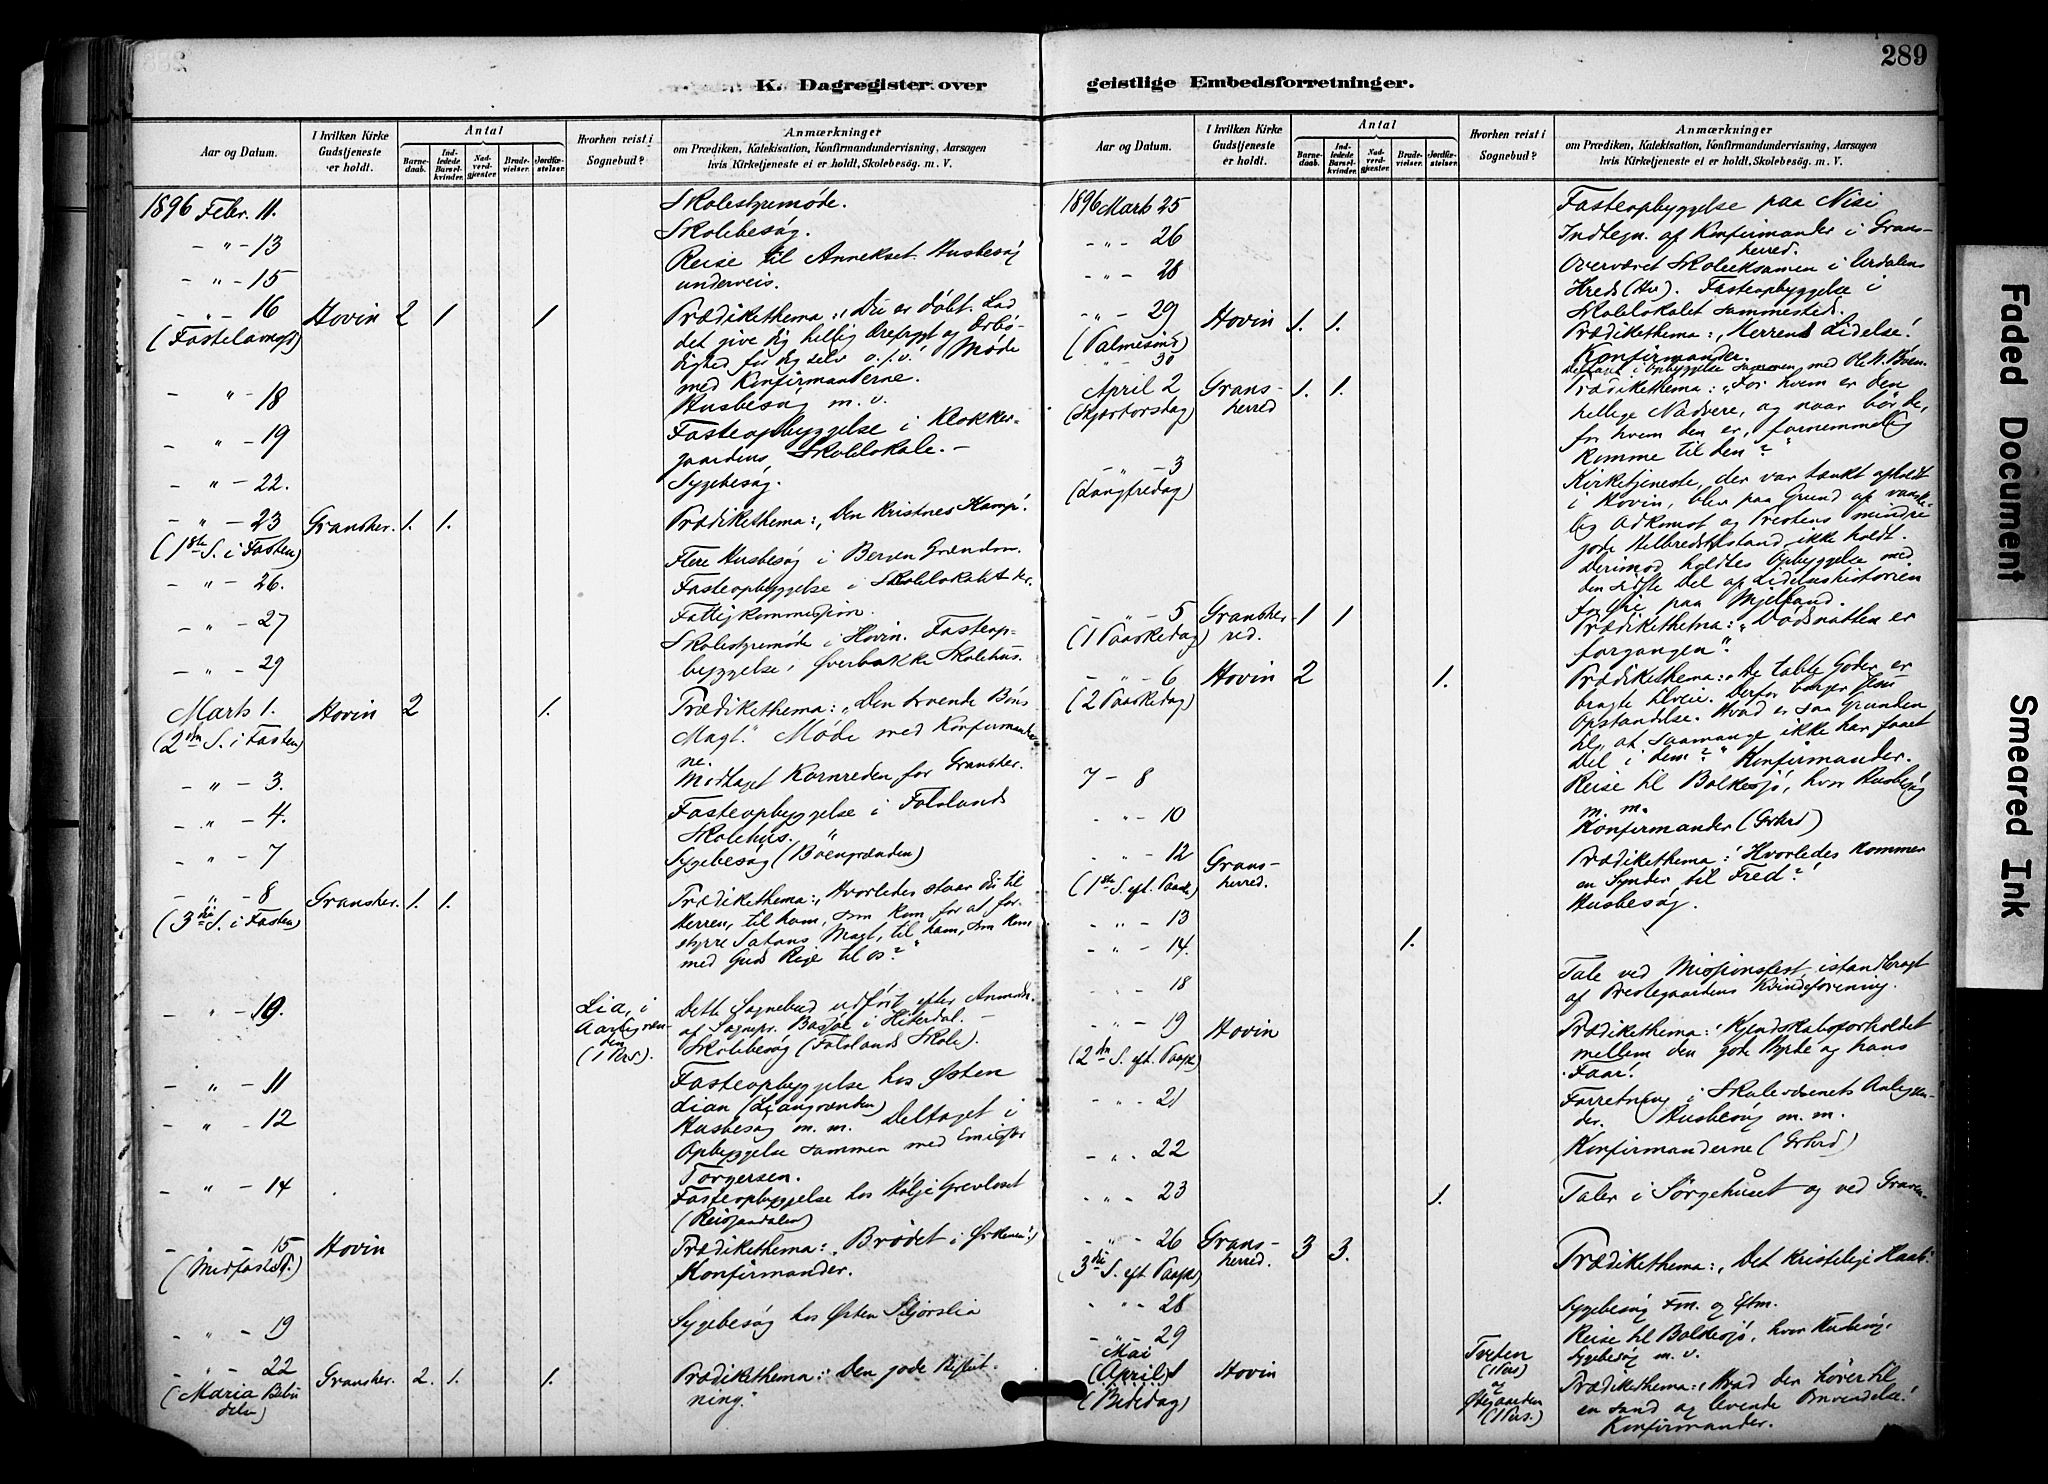 289
K. Dagregister over
geistlige Embedsforretninger.
Aar og Datum.
I hvilken Kirke Gudstjeneste er holdt.
Antal
Barnedaab.
Indledede Barselkvinder.
Nadverdgjester.
Brudevielser.
Jordfæstelser.
Hvorhen reist i Sognebud?
Anmærkninger
om Prædiken, Katekisation, Konfirmandundervisning, Aarsagen
hvis Kirketjeneste ei er holdt, Skolebesög. m. V.
1896 Febr. 11. Skolestyremøde.
- " - 13 Skolebesøg.
- " - 15 Reise til Annekset. Husbesøg
underveis.
- " - 16 Hovin 2 1 1 Prædikethema: "Du er døbt. Lad
(Fastelavnsd) det give dig hellig Ærefrygt og Ærbø-
dighed for dig selv o.s.v." Møde
med Konfirmanderne.
- " - 18 Husbesøg m. v.
- " - 19 Fasteopbyggelse i Klokker-
gaardens Skolelokale. -
- " - 22. Sygebesøg.
- " - 23 Gransher. 1. 1. Prædikethema: "Den Kristnes Kamp".
(1ste S. i Fasten) Flere Husbesøg i Bøen Grænden.
- " - 26. Fasteopbyggelse i Skolelokalet
- " - 27 Fattigkommission.
- " - 29 Skolestyremøde i Hovin. Fasteop-
byggelse i Øverbakke Skolehus.
Marts 1. Hovin 2 1. Prædikethema: "Den troende Bøns
(2den S. i Fasten) Magt." Møde med Konfirmander-
ne.
- " - 3. Modtaget Kornreden for Gransher.
- " - 4. Fasteopbyggelse i Folslands
Skolehus.
- " - 7 Sygebesøg (Bøengrænden)
- " - 8 Gransher. 1. 1. Prædikethema: "Hvorledes staar du til
(3die S. i Fasten) Herren, til ham, som kom for at for-
styrre Satans Magt, til ham, som kom
med Guds Rige til os?"
- " - 10. Lia, i Dette Sognebud udført efter Anmodn.
af Sognepr. i Hiterdal. -
den (1 Pers). Skolebesøg (Folslands Skole).
- " - 11 Fasteopbyggelse hos Østen
Lian (Liangrænden)
- " - 12 Husbesøg m. m. Deltaget i
Opbyggelse sammen med
Torgersen.
- " - 14 Fasteopbyggelse hos Hølje Grevloset
(Reisjaadalen)
- " - 15 Hovin Prædikethema: "Brødet i Ørkenen".
(Midfaste S.) Konfirmander.
- " - 19 Sygebesøg hos Østen Skjørslia
- " - 22 Gransher. 2. 1. 1. Prædikethema: "Den gode Beslut-
(Maria Bebu ning."
delse)
Aar og Datum.
I hvilken Kirke Gudstjeneste er holdt.
Antal
Barnedaab.
Indledede Barselkvinder.
Nadverdgjester.
Brudevielser.
Jordfæstelser.
Hvorhen reist i Sognebud?
Anmærkninger
om Prædiken, Katekisation, Konfirmandundervisning, Aarsagen
hvis Kirketjeneste ei er holdt, Skolebesög. m. V.
1896 Marts 25 Fasteopbyggelse paa Nisi
- " - 26 Indtegn. af Konfirmander i Grans-
herred.
- " - 28 Overværet Skoleeksamen i Urdalens
Kreds (Hov). Fasteopbyggelse i
Skolelokalet sammesteds.
- " - 29 Hovin 1. 1. Prædikethema: "Herrens Lidelse".
(Palmesønd) Konfirmander.
" 30 Deltaget i Opbyggelse sammen med Ol. N. Bøen.
April 2 Grans- 1. 1. Prædikethema: "For hvem er den
(Skjærtorsdag) herred hellige Nadvere, og naar bør de,
for hvem den er, fornemmelig
komme til den?"
- " - 3 Kirketjeneste, der var tænkt afholdt
(Langfredag) i Hovin, blev paa Grund af vanske-
lig Adkomst og Prestens mindre
gode Helbredstilstand ikke holdt.
Derimod holdtes Opbyggelse med
den sidste Del af Lidelseshistorien
for Øie paa Mjelland.
- " - 5 Gransher- 1 1 Prædikethema: "Dødsnatten er
(1 Paaskedag) red. forgangen".
- " - 6 Hovin 2 1. Prædikethema: "De tabte Goder er
(2 Paaskedag) bragte tilveie. Derfor borger Jesu
Opstandelse. Hvad er saa Grunden
til, at saamange ikke har faaet
Del i dem?" Konfirmander.
7 - 8 Reise til Bolkesjø, hvor Husbesøg
m. m.
- " - 10 Konfirmander (Grhrd)
- " - 12 Grans- Prædikethema: "Hvorledes kommer
(1ste S. eft. Paaske) herred. en Synder til Fred?"
- " - 13 Husbesøg.
- " - 14. 1.
- " - 18 Tale ved Missionsfest, istandbragt
af Prestegaardens Kvindeforening.
- " - 19 Hovin Prædikethema: "Kjendskabsforholdet
(2den S. eft. Paaske) mellem den gode Hyrde og hans
Faar".
- " - 21 Forretning i Skolevæsenets Anliggen-
der. Husbesøg m. m.
- " - 22 Konfirmanderne (Grhrd)
- " - 23 1. Taler i Sørgehuset og ved Graven.
- " - 26 Grans- 3 3. Prædikethema: "Det kristelige Haab".
(3die S. eft Paaske) herred.
- " - 28 Sygebesøg Fm. og Eftm.
- " - 29 Reise til Bolkesjø, hvor Husbesøg,
Sygebesøg m. v.
Mai
(April) 1 Hovin Tveten Prædikethema: "Hvad der hører til
(Bededag) (1 Pers) en sand og levende Omvendelse".
og Konfirmander.
Øygaarden
(1 Pers.)
Faded Document
Smeared Ink